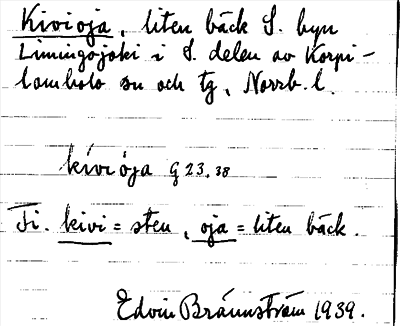 Kivioja, liten bäck S. byn
Limingojoki i S. delen av Korpi-
lombolo sn och tg, Norrb. l.
kíviója G 23, 38
Fi. kivi = sten, oja = liten bäck.
Edvin Brännström 1939.